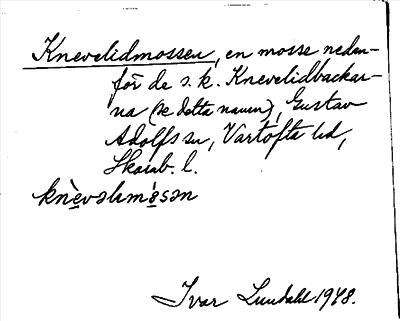 Knevelidmossen, en mosse nedan-
för de s.k. Knevelidbackar-
na (se detta namn), Gustav
Adolfs sn, Vartofta hd,
Skarab. l.
knèvəlɩmòsən
Ivar Lundahl 1948.